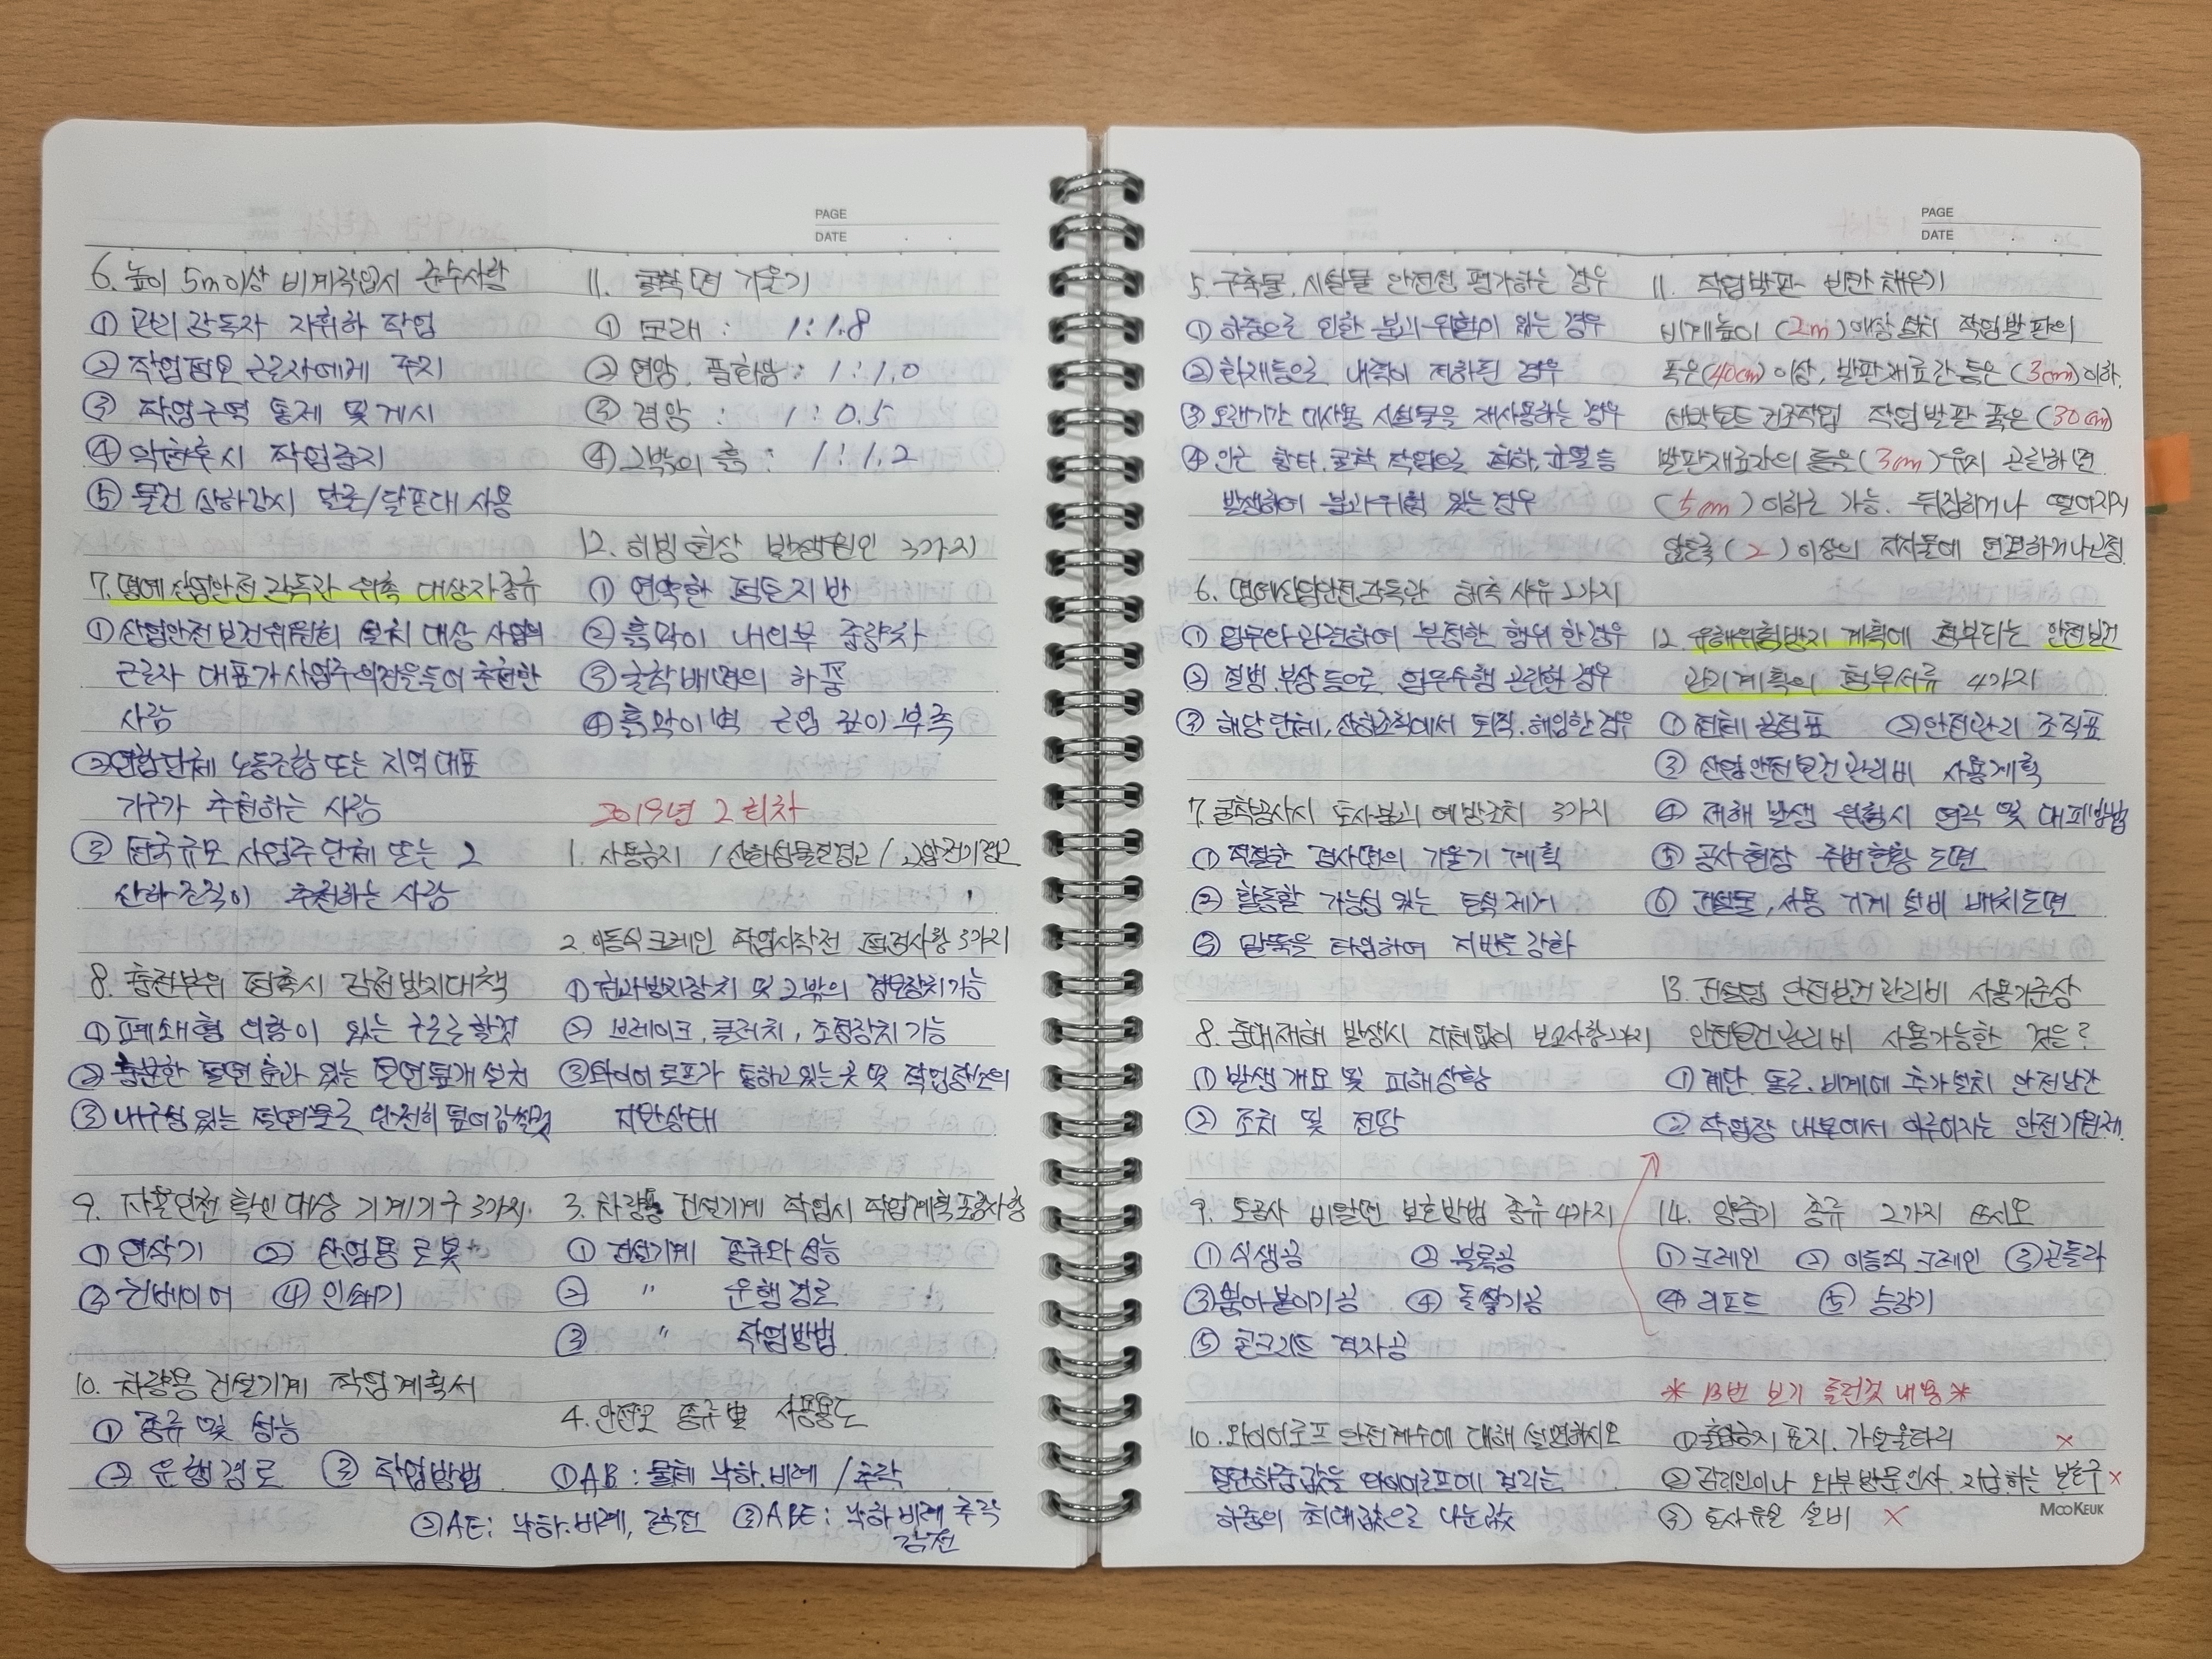 PAGE
DATE
6. 높이 5m이상 비계작업시 준수사항
① 관리감독자 지휘하 작업
② 작업내용 근로자에게 주지
③ 작업구역 통제 및 게시
④ 악천후시 작업중지
⑤ 물건 상하강시 달줄/달포대 사용
7. 명예산업안전감독관 위촉 대상자 종류
① 산업안전보건위원회 설치 대상 사업의
근로자 대표가 사업주의견을 들어 추천한
사람
② 연합단체 노동조합 또는 지역 대표
기구가 추천하는 사람
③ 전국규모 사업주단체 또는 그
산하조직이 추천하는 사람
8. 충전부위 접촉시 감전방지대책
① 폐쇄형 외함이 있는 구조로 할것
② 충분한 절연효과 있는 절연덮개 설치
③ 내구성 있는 절연물로 완전히 덮어 감쌀것
9. 자율안전 확인 대상 기계기구 3가지.
① 연삭기 ② 산업용 로봇
③ 컨베이어 ④ 인쇄기
10. 차량용 건설기계 작업계획서
① 종류 및 성능
② 운행경로 ③ 작업방법
11. 굴착면 기울기
① 모래 : 1:1.8
② 연암, 풍화암 : 1:1.0
③ 경암 : 1:0.5
④ 그밖의 흙 : 1:1.2
12. 히빙현상 발생원인 3가지
① 연약한 점토지반
② 흙막이 내외부 중량차
③ 굴착배면의 하중
④ 흙막이벽 근입 깊이 부족
2019년 2회차
1. 사용금지 / 산화성물질경고 / 고압전기경고
2. 이동식크레인 작업시작전 점검사항 3가지
① 권과방지장치 및 그밖의 경보장치기능
② 브레이크, 클러치, 조정장치 기능
③ 와이어로프가 통하고있는곳 및 작업장소의
지반상태
3. 차량용 건설기계 작업시 작업계획 포함사항
① 건설기계 종류와 성능
② 〃 운행경로
③ 〃 작업방법
4. 안전모 종류별 사용용도
① AB : 물체 낙하.비래 / 추락
② AE : 낙하.비래, 감전 ③ ABE : 낙하 비래 추락
감전
PAGE
DATE
5. 구축물, 시설물 안전성 평가하는 경우
① 하중으로 인한 붕괴위험이 있는 경우
② 화재등으로 내력이 저하된 경우
③ 오랜기간 미사용 시설물을 재사용하는 경우
④ 인근 항타, 굴착 작업으로 침하, 균열 등
발생하여 붕괴위험 있는경우
6. 명예산업안전감독관 해촉 사유 2가지
① 업무와 관련하여 부정한 행위 한경우
② 질병, 부상등으로 업무수행 곤란한 경우
③ 해당 단체, 산하조직에서 퇴직. 해임한 경우
7. 굴착공사시 토사붕괴 예방조치 3가지
① 적절한 경사면의 기울기 계획
② 활동할 가능성 있는 토석 제거
③ 말뚝을 타입하여 지반 강화
8. 중대재해 발생시 지체없이 보고사항 2가지
① 발생개요 및 피해상황
② 조치 및 전망
9. 토공사 비탈면 보호방법 종류 4가지
① 식생공 ② 블록공
③ 뿜어붙이기공 ④ 돌쌓기공
⑤ 콘크리트 격자공
10. 와이어로프 안전계수에 대해 설명하시오
절단하중값을 와이어로프에 걸리는
하중의 최대값으로 나눈값
11. 작업발판 빈칸 채우기
비계높이 (2m) 이상 설치 작업발판의
폭은(40cm) 이상, 발판재료간 틈은 (3cm)이하.
선박보트 건조작업 작업발판 폭은 (30cm)
발판재료간의 틈은(3cm)유지 곤란하면
(5cm) 이하로 가능. 뒤집히거나 떨어지지
않도록 (2) 이상의 지지물에 연결하거나고정
12. 유해위험방지 계획에 첨부되는 안전보건
관리계획의 첨부서류 4가지
① 전체 공정표 ② 안전관리 조직표
③ 산업안전보건관리비 사용계획
④ 재해 발생 위험시 연락 및 대피방법
⑤ 공사현장 주변현황 도면
⑥ 건설물, 사용 기계 설비 배치도면
13. 건설업 안전보건관리비 사용기준상
안전보건관리비 사용가능한 것은?
① 계단. 통로. 비계에 추가설치 안전난간
② 작업장 내부에서 이루어지는 안전기원제.
14. 양중기 종류 2가지 쓰시오
① 크레인 ② 이동식 크레인 ③ 곤돌라
④ 리프트 ⑤ 승강기
* 13번 보기 틀린것 내용 *
① 출입금지 표지. 가설울타리 ×
② 감리인이나 외부방문인사 지급하는 보호구 ×
③ 토사유실 설비 ×
MOOKEUK